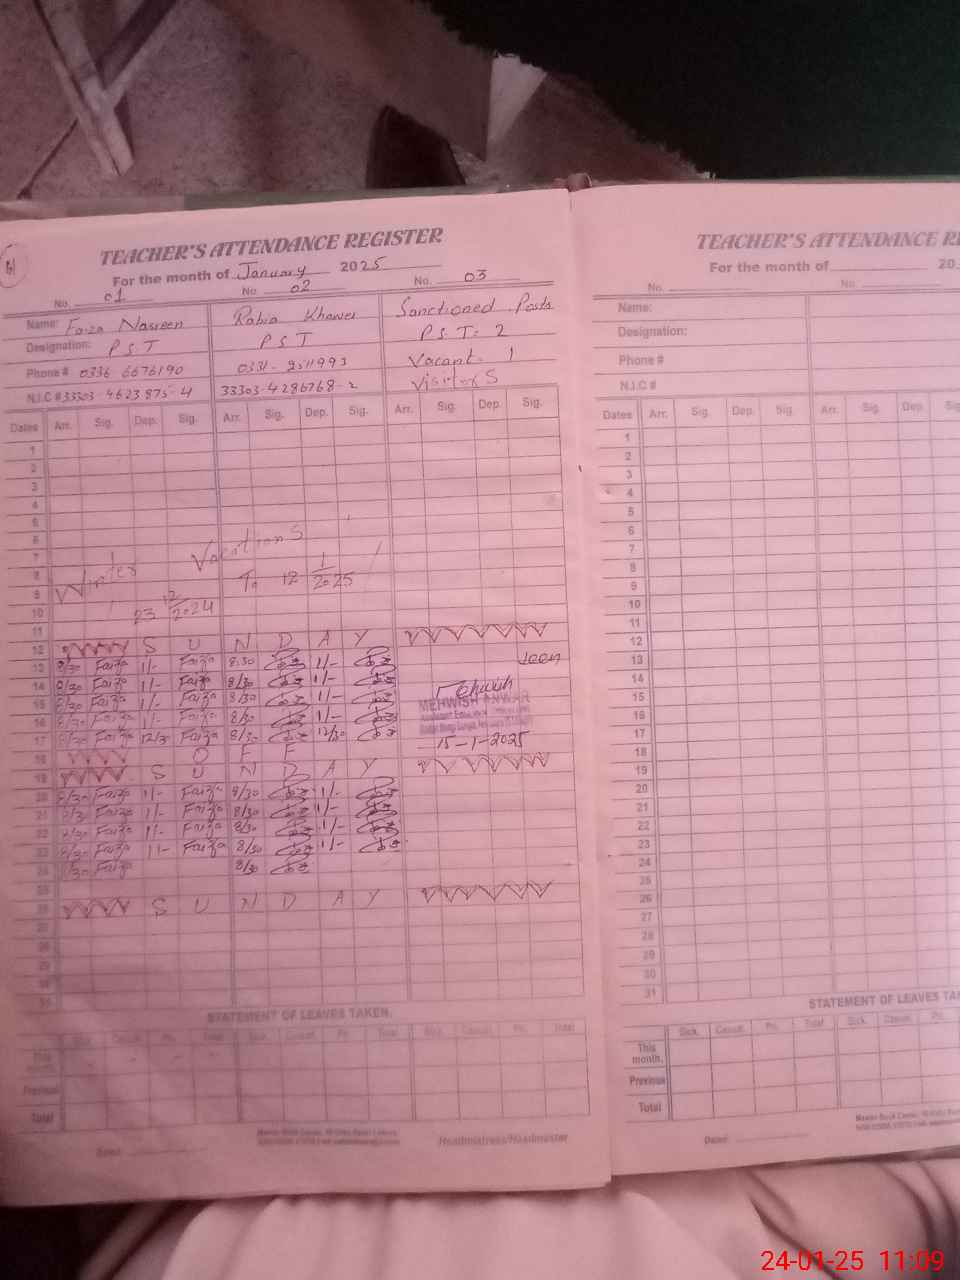 TEACHER'S ATTENDANCE REGISTER
For the month of January 2025
No. 01 No. 02 No. 03
Name: Faiza Nasreen Rabia Khawer Sanctioned Posts
Designation: P S T P S T P S T: 2
Phone # 0336 6676190 Vacant. 1
N.I.C # 33303-4623875-4 33303-4286768-2 Visitors
Dates Arr. Sig. Dep. Sig. Arr. Sig. Dep. Sig. Arr. Sig. Dep. Sig.
1
2
3
4
5
6
7 Winter Vacations
8 To 12/1/2025
9
10 23/12/2024
11
12 S U N D A Y
13 8/30 Faiza 1/- Faiza 8/30 1/- Seen
14 8/30 Faiza 1/- Faiza 8/30 1/-
15 8/30 Faiza 1/- Faiza 8/30 1/- MEHWISH ANWAR
16 8/30 Faiza 1/- Faiza 8/30 1/-
17 8/30 Faiza 12/30 Faiza 8/30 12/30 15-1-2025
18 O F F
19 S U N D A Y
20 8/30 Faiza 1/- Faiza 8/30 1/-
21 8/30 Faiza 1/- Faiza 8/30 1/-
22 8/30 Faiza 1/- Faiza 8/30 1/-
23 8/30 Faiza 1/- Faiza 8/30 1/-
24 8/30 Faiza 8/30
25
26 S U N D A Y
27
28
29
30
31
STATEMENT OF LEAVES TAKEN.
Sick. Casual. Pri. Total Sick. Casual. Pri. Total Sick. Casual. Pri. Total
This month.
Previous
Total
Dated: Headmistress/Headmaster
TEACHER'S ATTENDANCE RE
For the month of 20
No. No.
Name:
Designation:
Phone #
N.I.C #
Dates Arr. Sig. Dep. Sig. Arr. Sig. Dep. Sig
1
2
3
4
5
6
7
8
9
10
11
12
13
14
15
16
17
18
19
20
21
22
23
24
25
26
27
28
29
30
31
STATEMENT OF LEAVES TA
Sick. Casual. Pri. Total Sick. Casual. Pri.
This month.
Previous
Total
Dated:
24-01-25 11:09